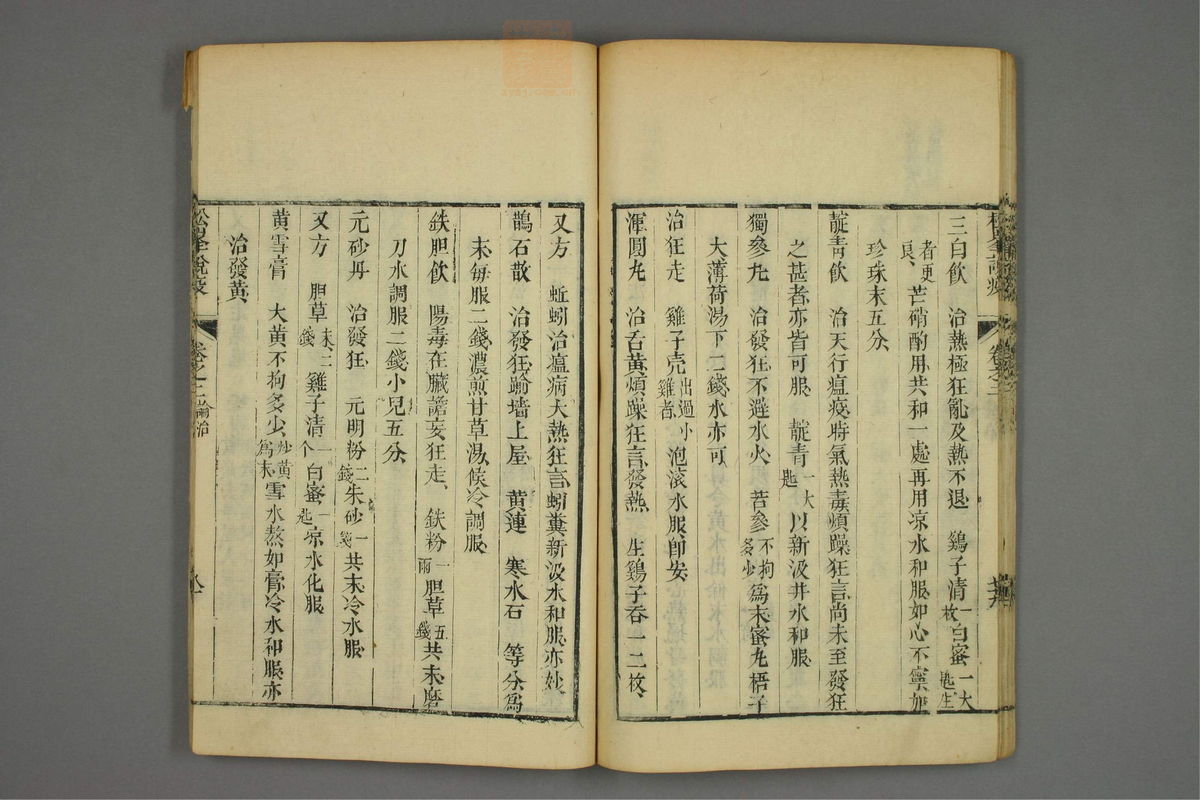 三白飲　治熱極狂亂及熱不退　鷄子清一枚白蜜一大匙生
者更良芒硝酌用共和一處再用凉水和服如心不寧加
珍珠末五分
靛青飲　治天行瘟疫時氣熱毒煩躁狂言尚未至發狂
之甚者亦皆可服　靛青一大匙以新汲井水和服
獨參丸　治發狂不避水火　苦參不拘多少為末蜜丸梧子
大薄荷湯下二錢水亦可
治狂走　雞子壳出過小雞者泡滾水服即安
渾圓丸　治舌黃煩躁狂言發熱　生鷄子吞一二枚
又方　蚯蚓治瘟病大熱狂言蚓糞新汲水和服亦妙
鵲石散　治發狂踰墻上屋　黃連　寒水石　等分為
末每服二錢濃煎甘草湯候冷調服
鉄胆飲　陽毒在臟譫妄狂走　鉄粉一兩胆草五錢共末磨
刀水調服二錢小兒五分
元砂丹　治發狂　元明粉二錢朱砂一錢共末冷水服
又方　胆草末二錢雞子清一个白蜜一匙凉水化服
黃雪膏　大黃不拘多少炒黃為末雪水熬如膏冷水和服亦
治發黃
松峯說疫　卷之二　論治　八